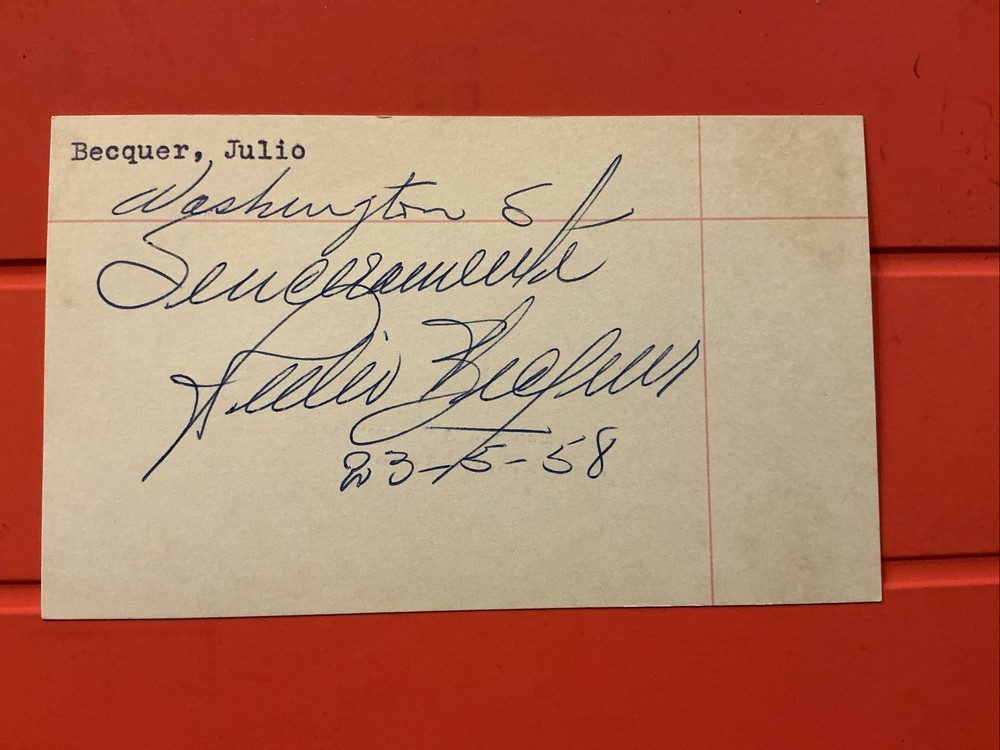 Becquer, Julio
Washington S
Sinceramente
Julio Becquer
23-5-58